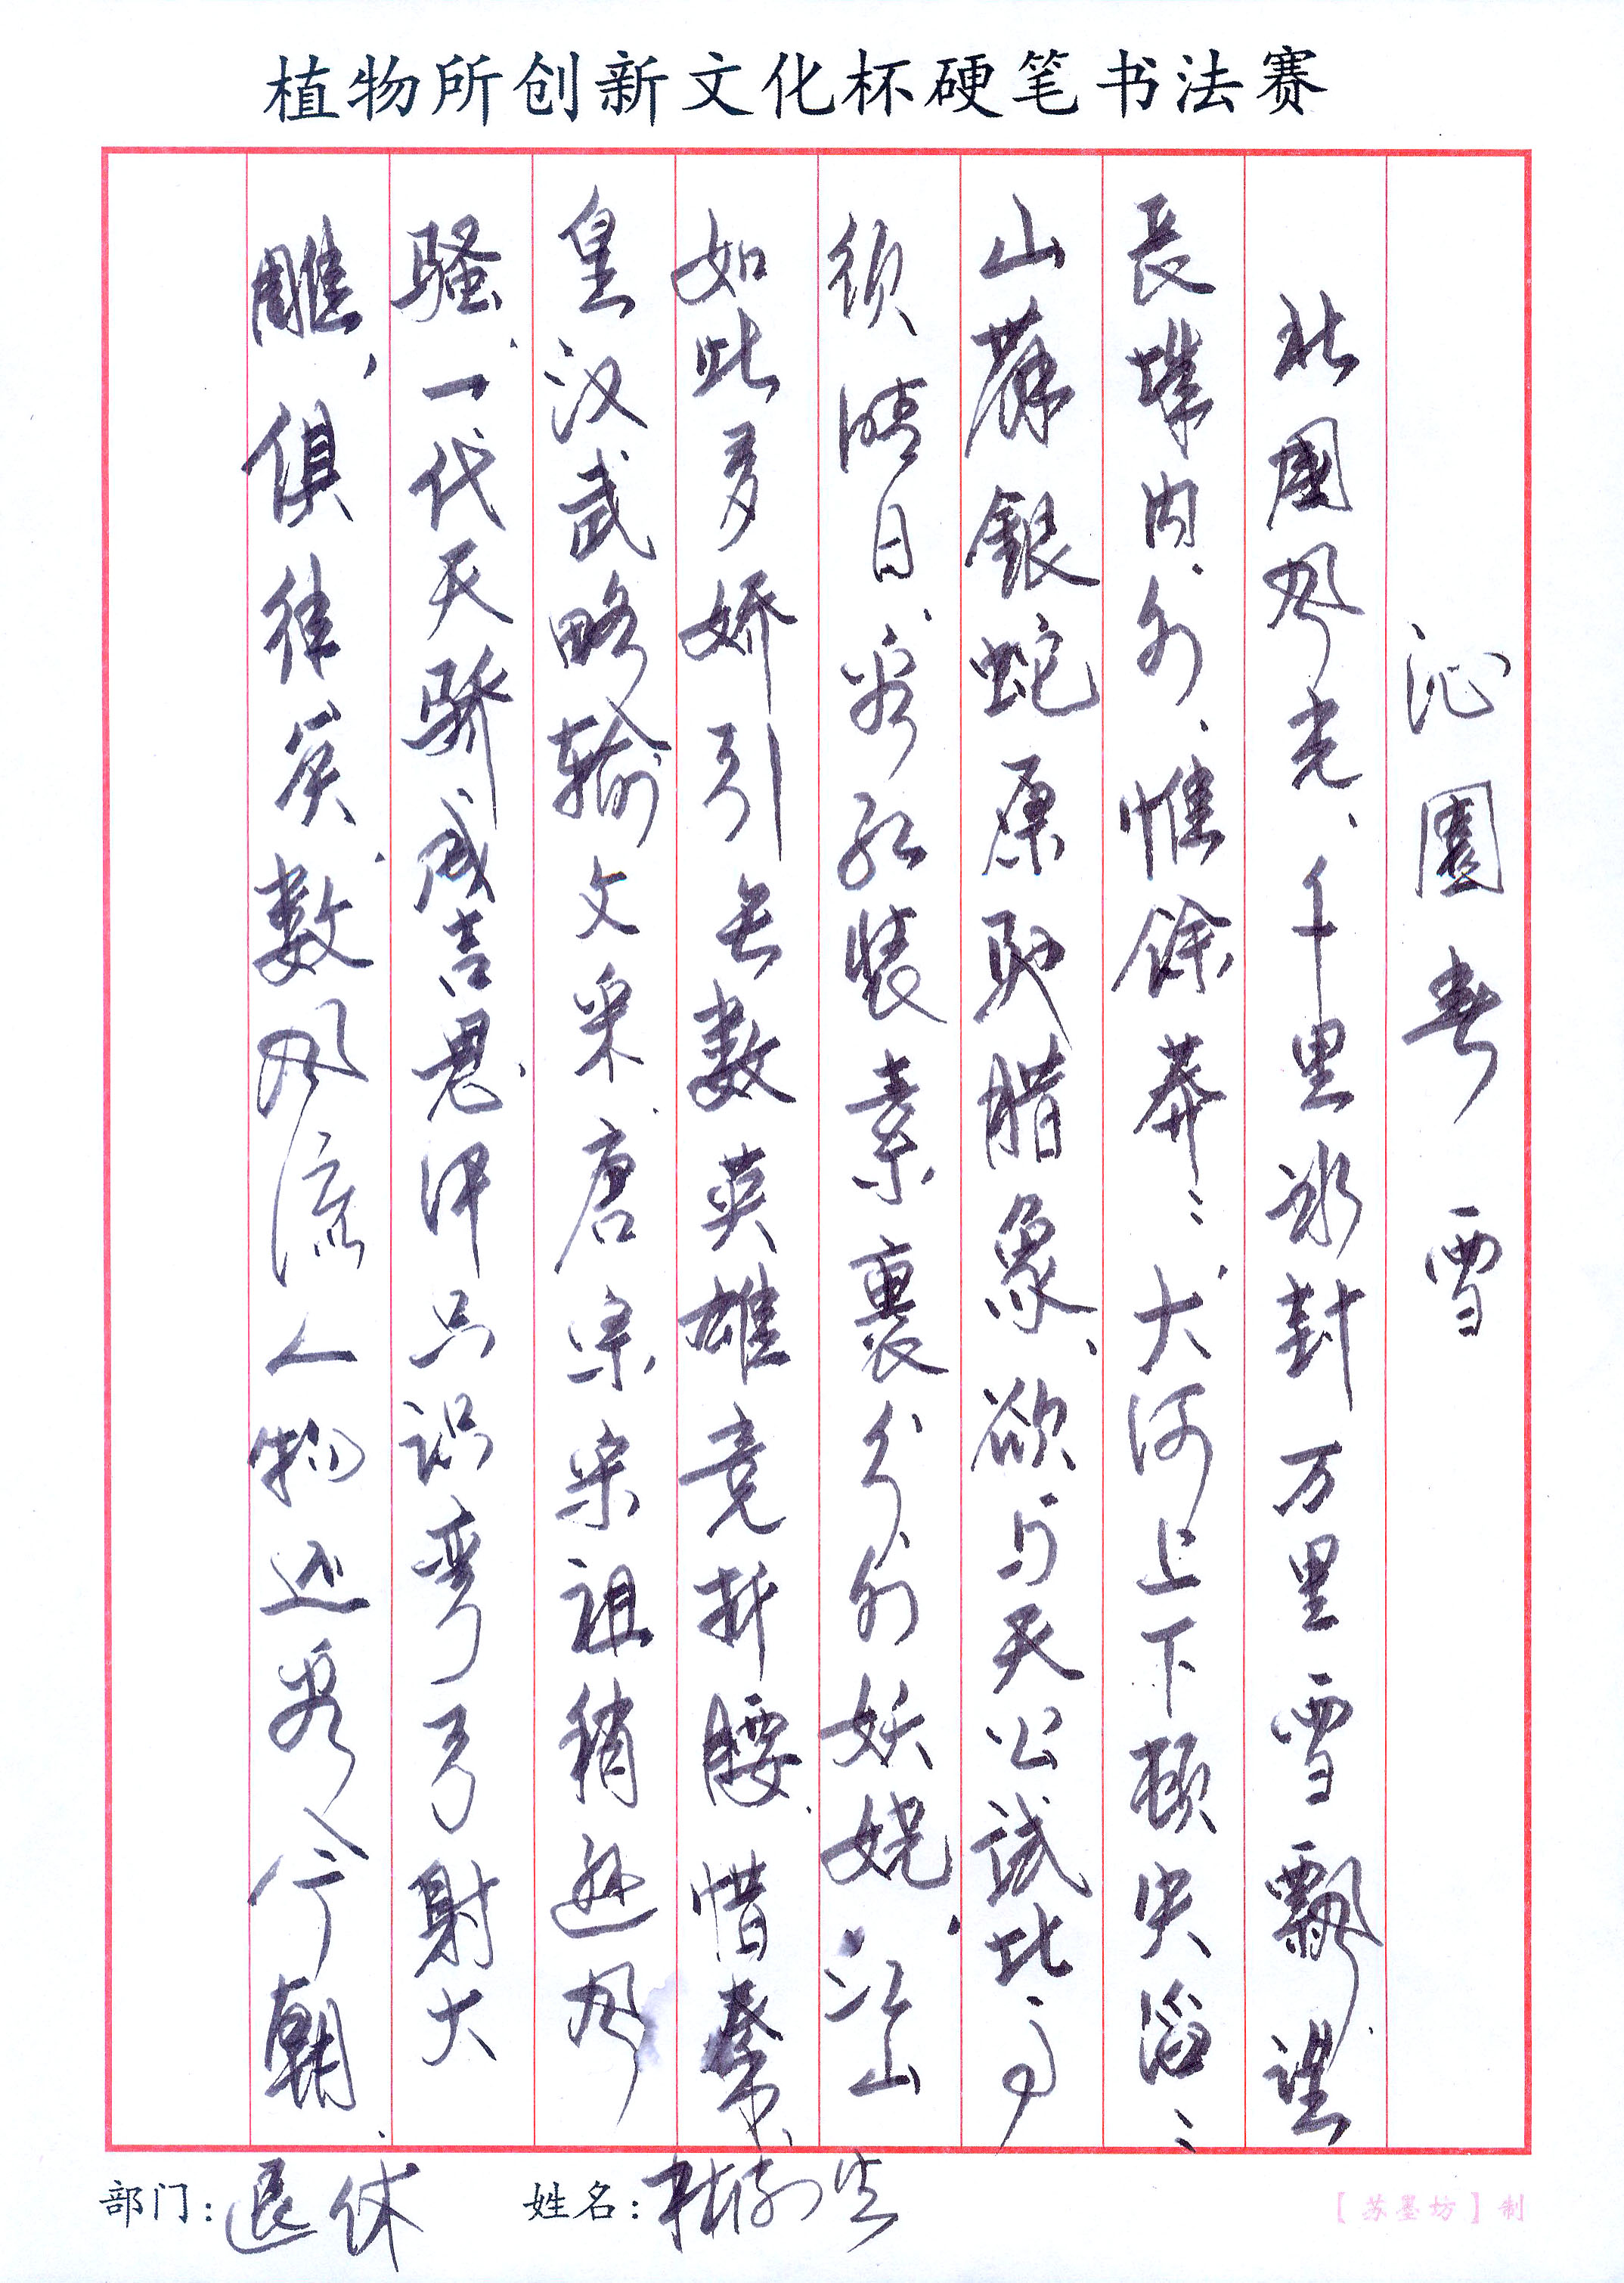 植物所创新文化杯硬笔书法赛
沁園春 雪
北國风光、千里冰封万里雪飘.望
長城内、外、惟餘莽〻、大河上下頓失滔〻
山舞銀蛇原馳腊象、欲与天公試比高
须晴日、看红装素裹分外妖娆.江山
如此多娇引无数英雄竞折腰.惜秦
皇汉武略输文采.唐宗宋祖稍逊风
骚.一代天骄成吉思汗只识弯弓射大
雕,俱往矣.數风流人物还看今朝.
部门:退休
姓名:
【苏墨坊】制